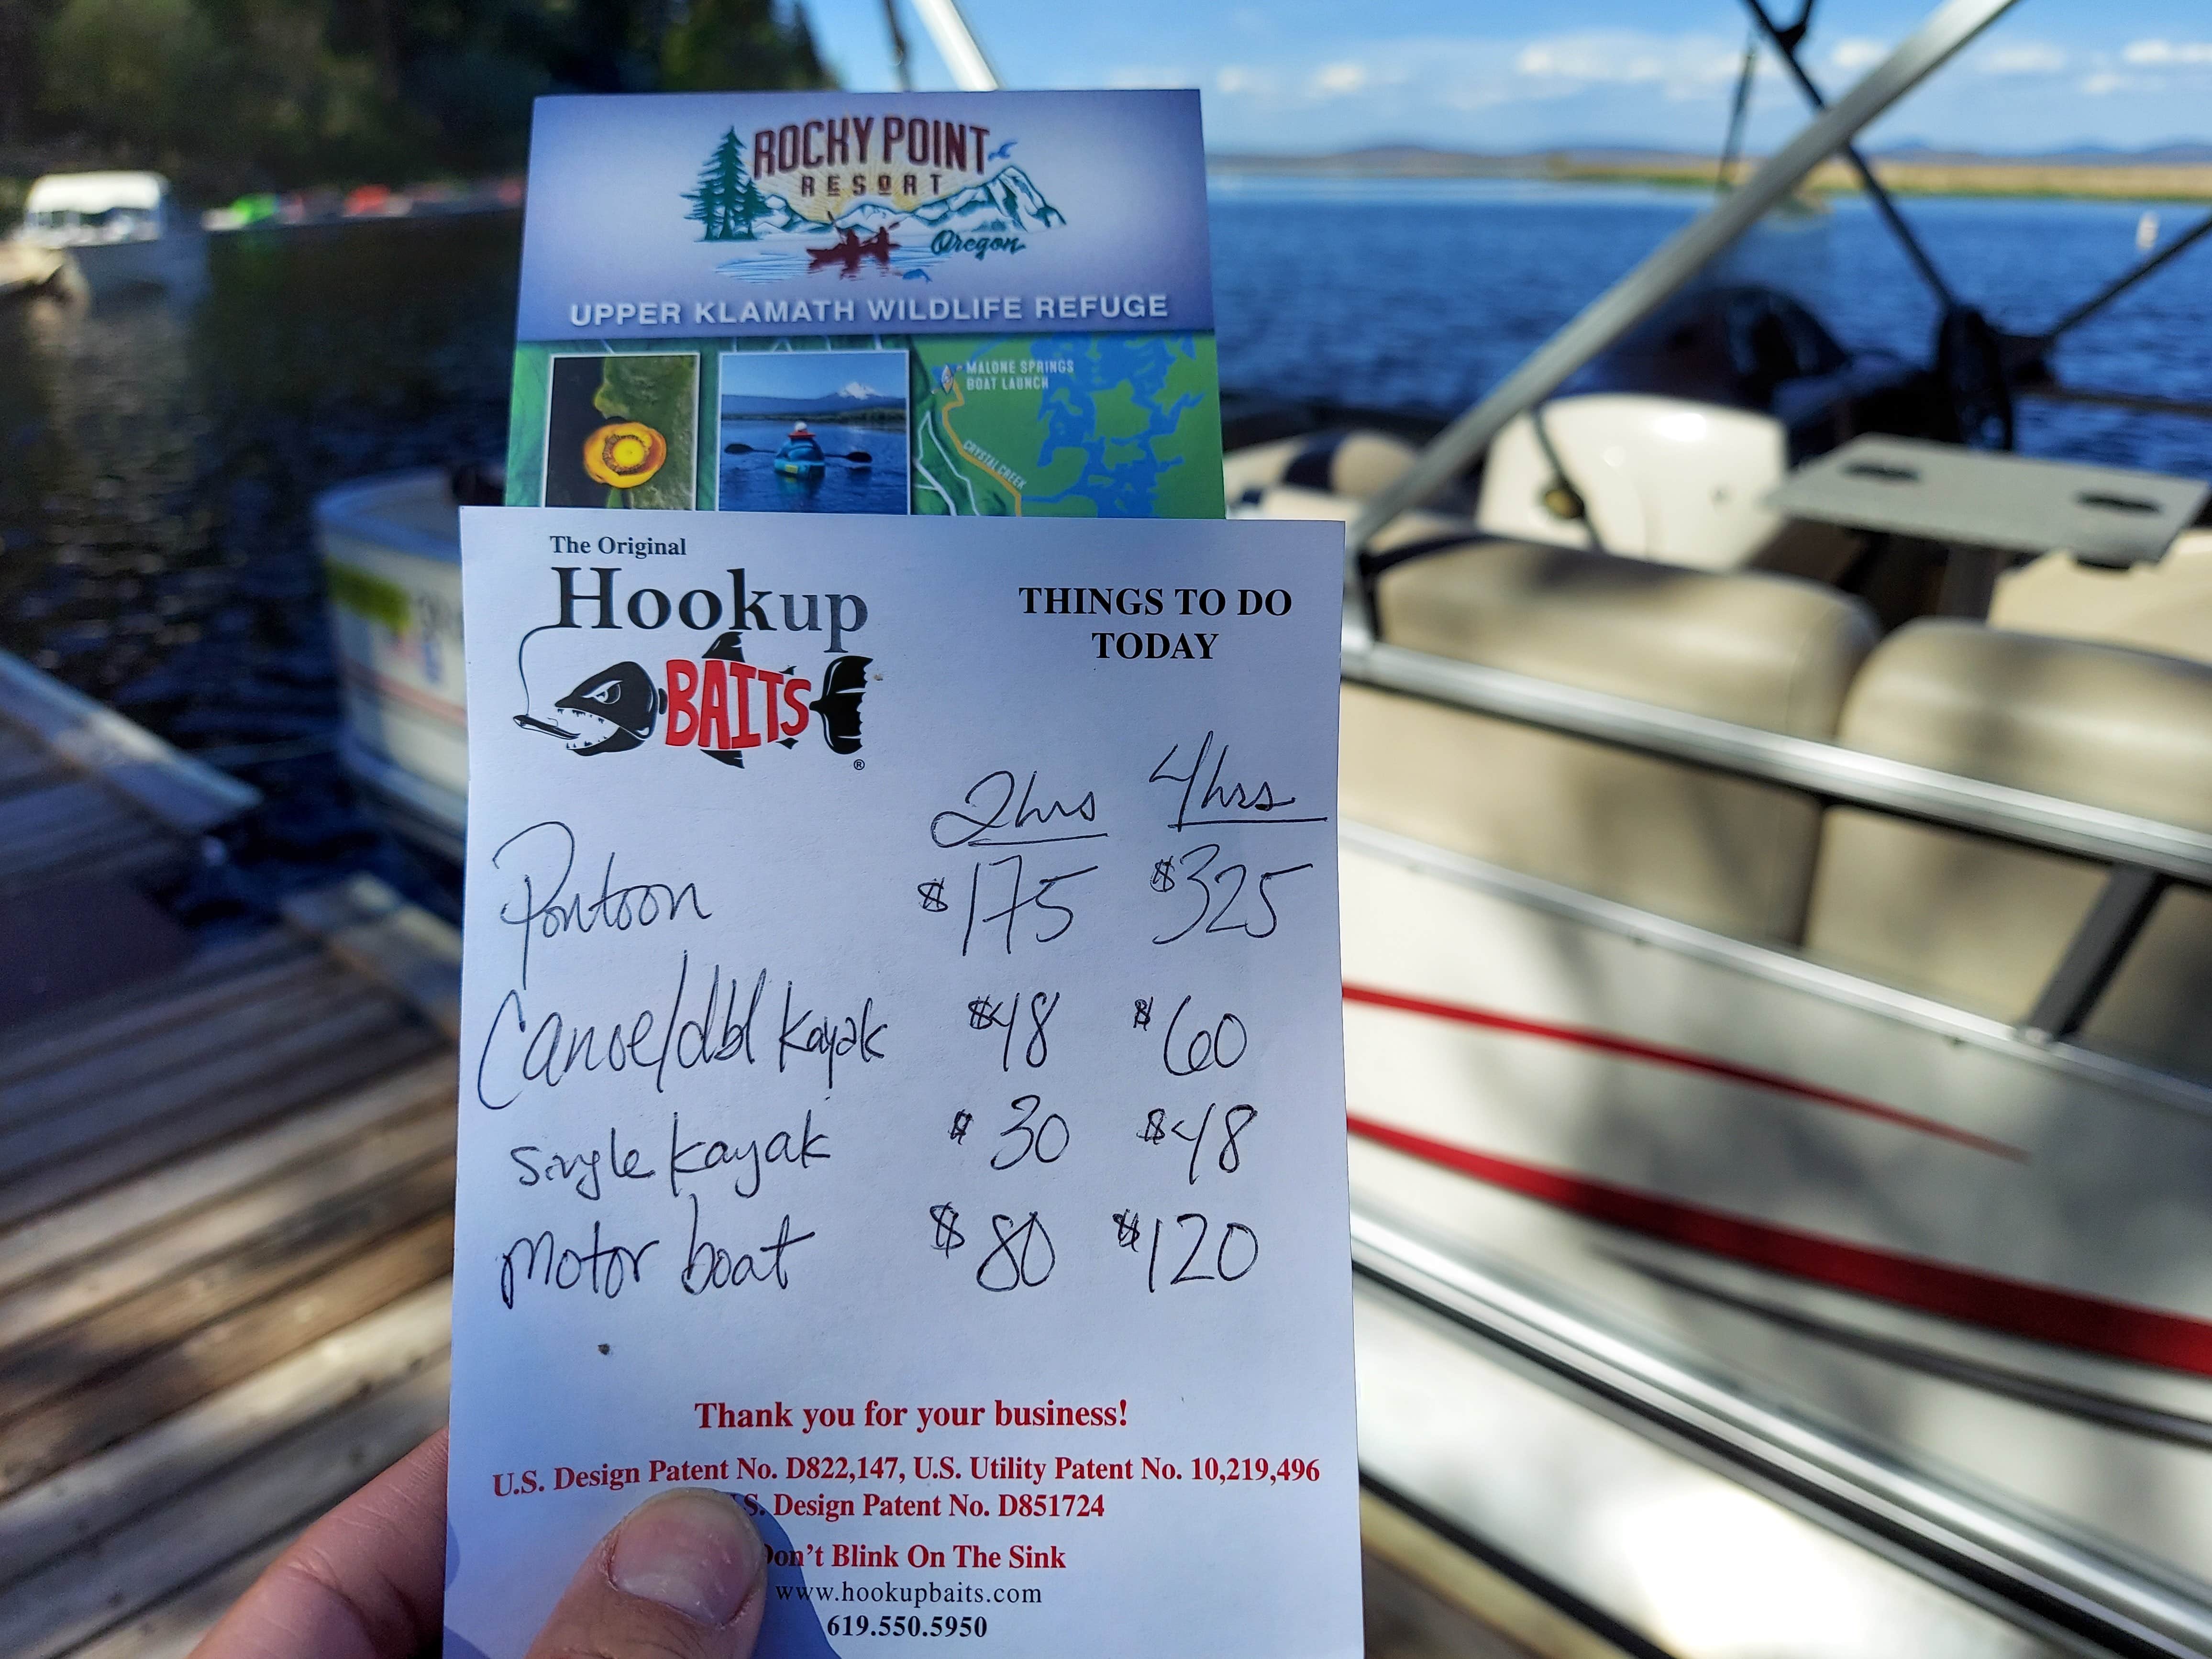 ROCKY POINT
RESORT
Oregon
UPPER KLAMATH WILDLIFE REFUGE
MALONE SPRINGS
BOAT LAUNCH
CRYSTAL CREEK
The Original
Hookup
BAITS
®
THINGS TO DO
TODAY
2hrs 4hrs
Pontoon $175 $325
Canoe/dbl kayak $48 $60
single kayak $30 $48
motor boat $80 $120
Thank you for your business!
U.S. Design Patent No. D822,147, U.S. Utility Patent No. 10,219,496
S. Design Patent No. D851724
Don't Blink On The Sink
www.hookupbaits.com
619.550.5950